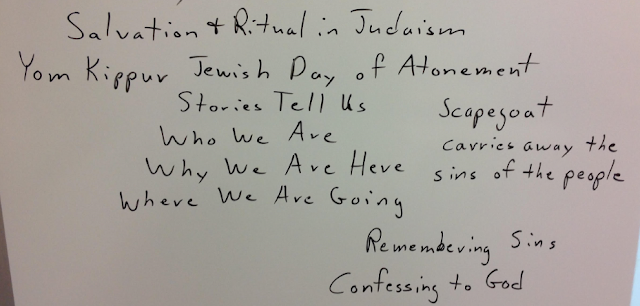 Salvation & Ritual in Judaism
Yom Kippur Jewish Day of Atonement
Stories Tell Us
Who We Are
Why We Are Here
Where We Are Going
Scapegoat
carries away the
sins of the people
Remembering Sins
Confessing to God